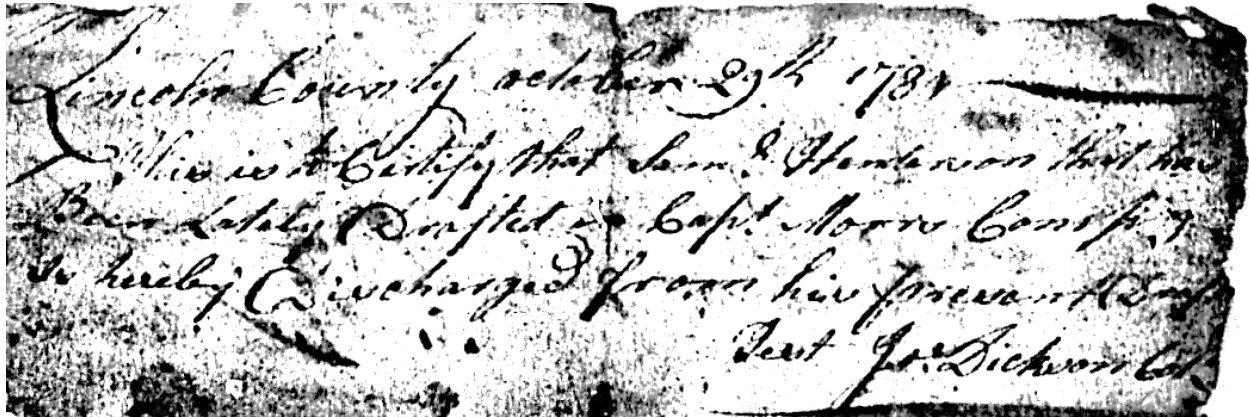 Lincoln County october 29th 178
This is to Certify that Sam.l Henderson that has
Been Lately Drafted in Capt. Moors Comp.y
Is hereby Discharged from his presant Draft
Test Jos. Dickson Col.